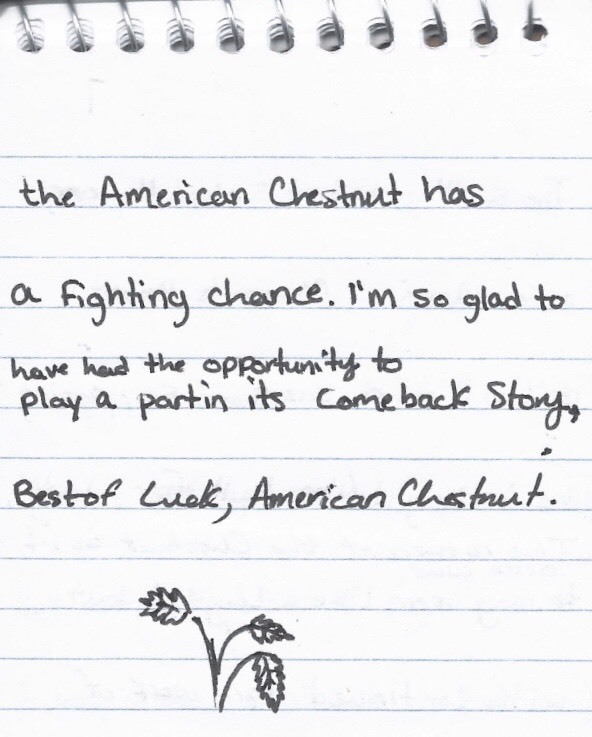 the American Chestnut has
a fighting chance. I'm so glad to
have had the opportunity to
play a part in its comeback story,
Best of Luck, American Chestnut.